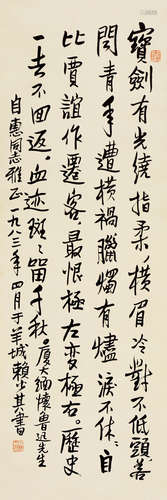 寶劍有光繞指柔,橫眉冷對不低頭善
閩青年遭橫禍臘燭有燼淚不休自
比賈誼作遷客最恨極左變極右歷史
一去不回返血迹斑斑留千秋廈大緬懷魯迅先生
自惠同志雅正一九八三年四月于羊城賴少其書